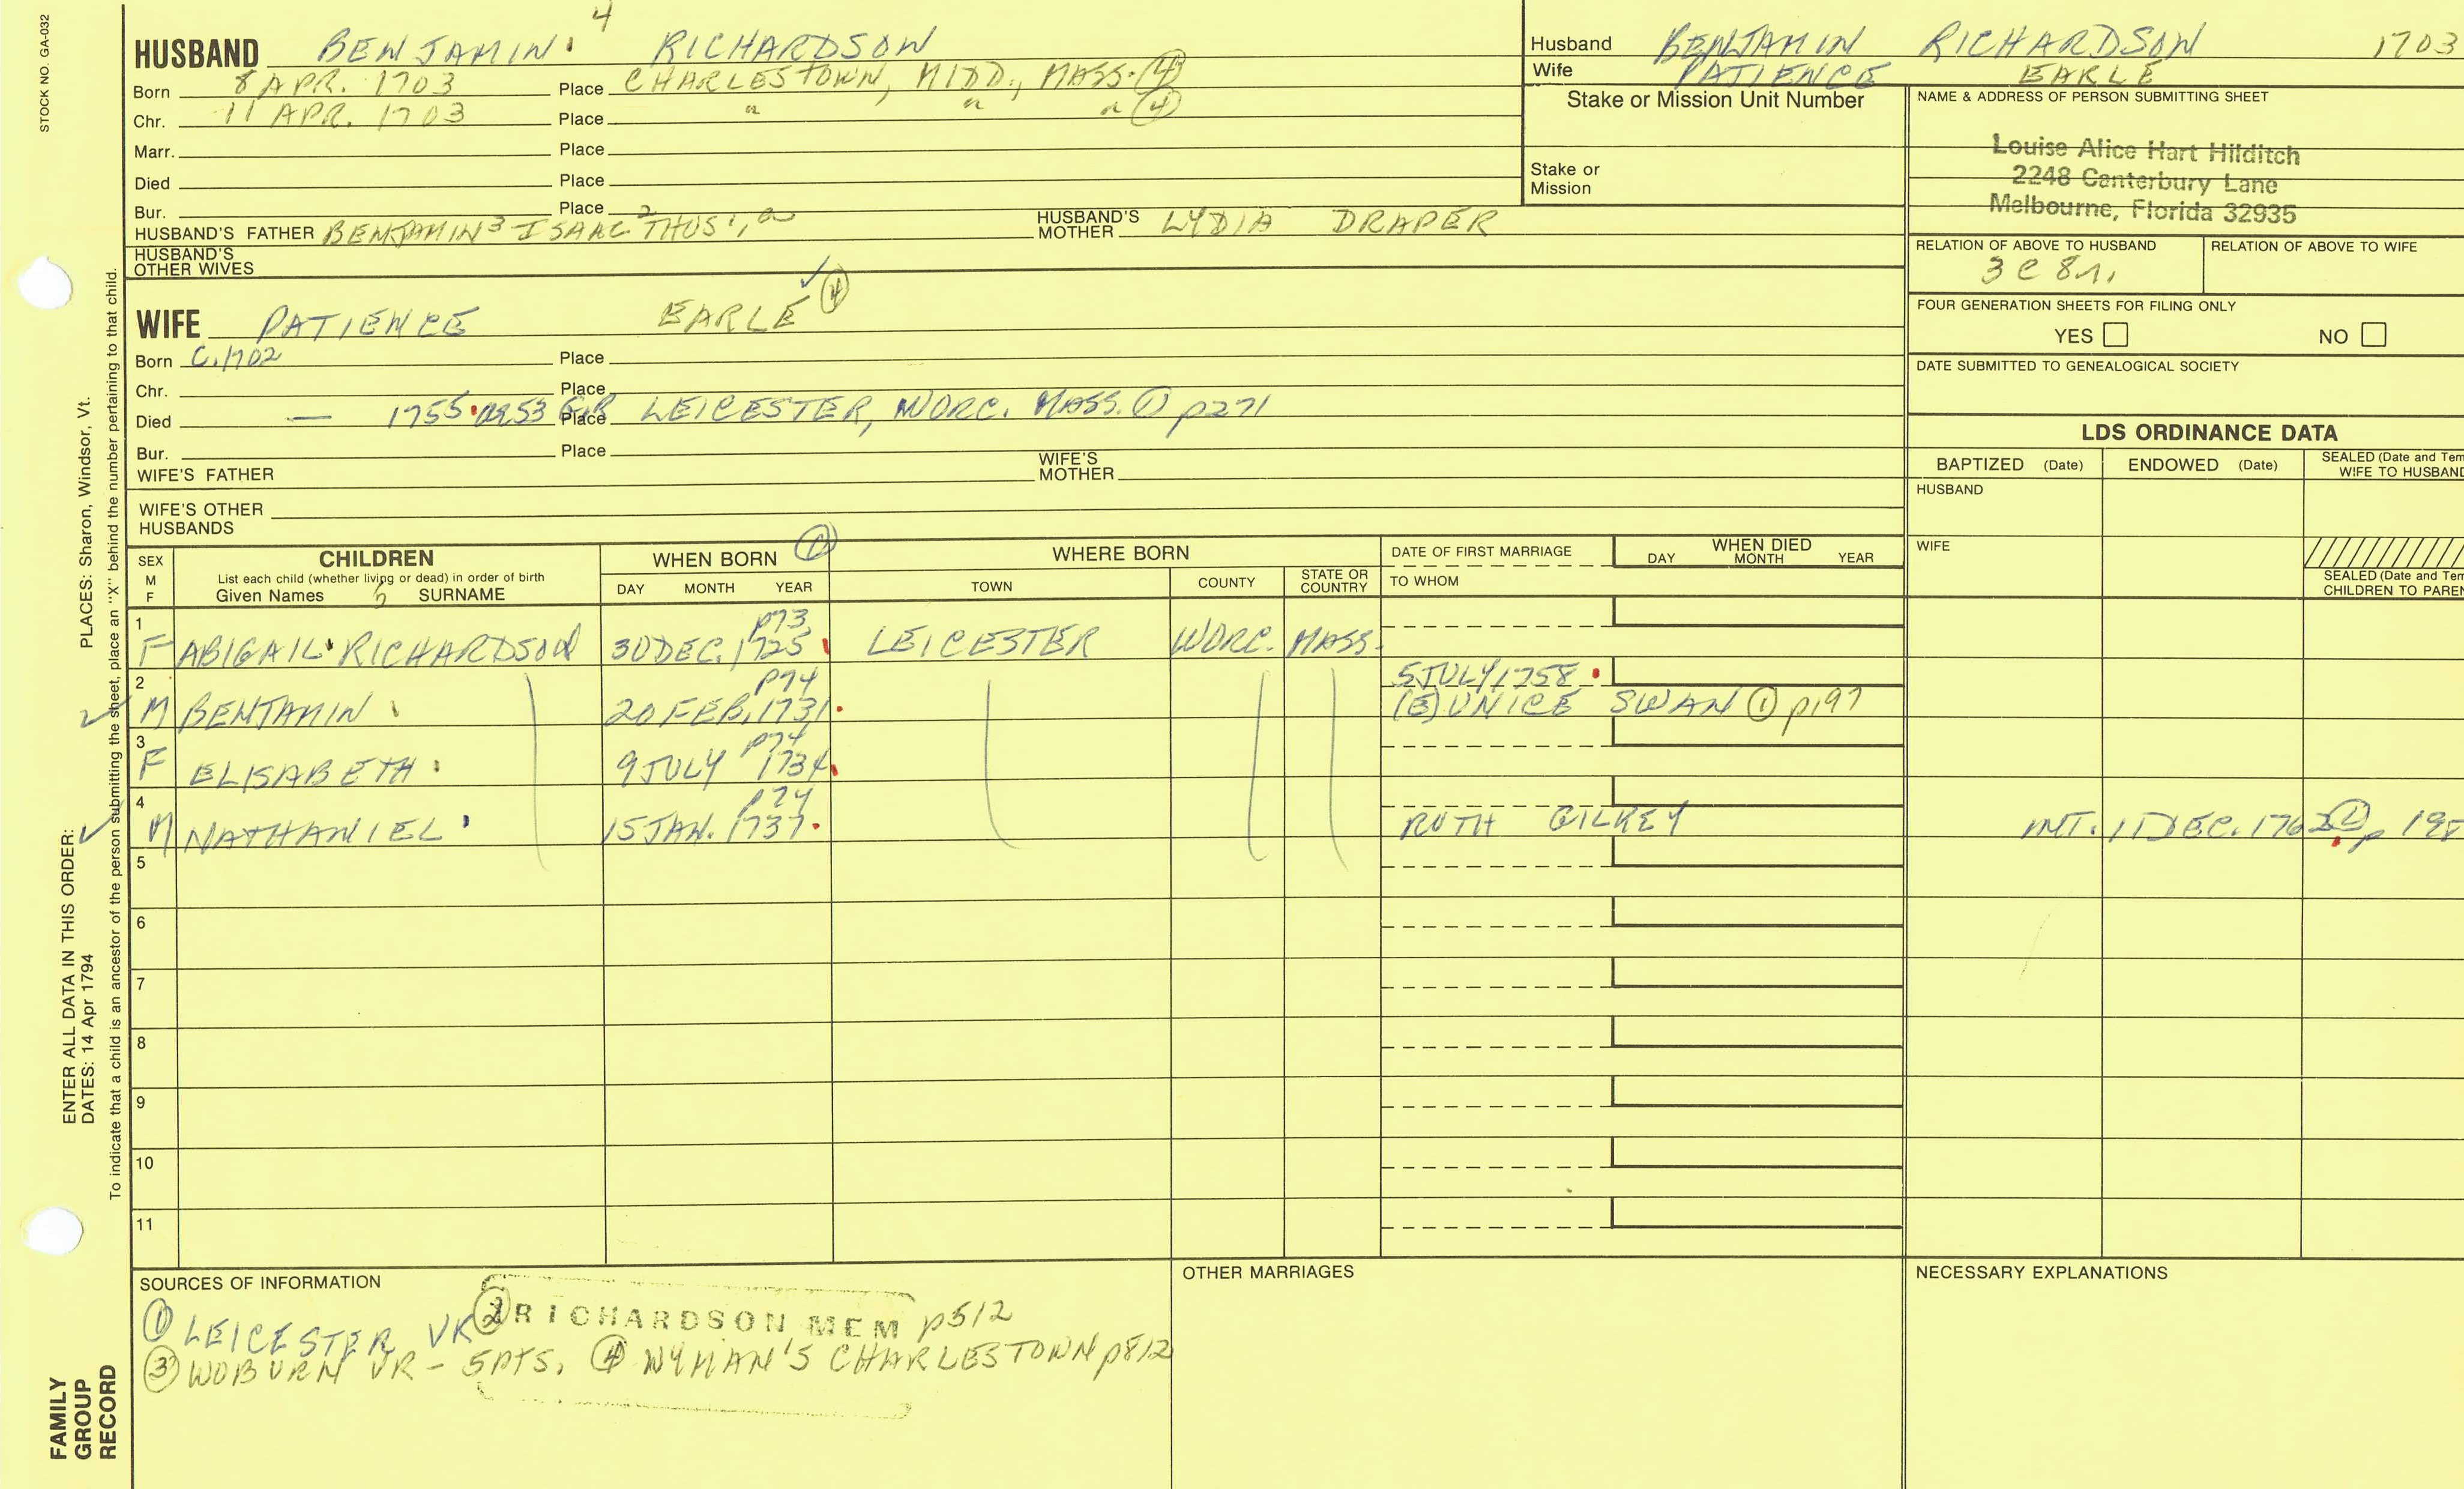 STOCK NO. GA-032
PLACES: Sharon, Windsor, Vt.
ENTER ALL DATA IN THIS ORDER:
DATES: 14 Apr 1794
To indicate that a child is an ancestor of the person submitting the sheet, place an "X" behind the number pertaining to that child.
FAMILY
GROUP
RECORD
4
HUSBAND BENJAMIN RICHARDSON
Born 8 APR. 1703 Place CHARLESTOWN, MIDD., MASS. (4)
Chr. 11 APR. 1703 Place " " " (4)
Marr. Place
Died Place
Bur. Place
HUSBAND'S FATHER BENJAMIN3 ISAAC2 THOS1, HUSBAND'S MOTHER LYDIA DRAPER
HUSBAND'S
OTHER WIVES
WIFE PATIENCE EARLE (4)
Born C.1702 Place
Chr. Place
Died — 1755 Place LEICESTER, WORC. MASS. (1) p271
Bur. Place
WIFE'S FATHER WIFE'S MOTHER
WIFE'S OTHER
HUSBANDS
Husband BENJAMIN RICHARDSON 1703
Wife PATIENCE EARLE
Stake or Mission Unit Number
Stake or
Mission
NAME & ADDRESS OF PERSON SUBMITTING SHEET
Louise Alice Hart Hilditch
2248 Canterbury Lane
Melbourne, Florida 32935
RELATION OF ABOVE TO HUSBAND RELATION OF ABOVE TO WIFE
3 C 8 r.
FOUR GENERATION SHEETS FOR FILING ONLY
YES NO
DATE SUBMITTED TO GENEALOGICAL SOCIETY
LDS ORDINANCE DATA
BAPTIZED (Date) ENDOWED (Date) SEALED (Date and Tem
WIFE TO HUSBAND
HUSBAND
WIFE
SEALED (Date and Tem
CHILDREN TO PAREN
SEX CHILDREN WHEN BORN (1) WHERE BORN DATE OF FIRST MARRIAGE WHEN DIED
M List each child (whether living or dead) in order of birth DAY MONTH YEAR TOWN COUNTY STATE OR COUNTRY TO WHOM DAY MONTH YEAR
F Given Names 5 SURNAME
1 p73
F ABIGAIL RICHARDSON 30 DEC. 1725 LEICESTER WORC. MASS.
2 p74 5 JULY 1758
M BENJAMIN 20 FEB. 1731 (E)UNICE SWAN (1) p197
3 p74
F ELISABETH 9 JULY 1734
4 p74
M NATHANIEL 15 JAN. 1737 RUTH GILKEY INT. 11 DEC. 1762 (1) p
5
6
7
8
9
10
11
SOURCES OF INFORMATION OTHER MARRIAGES NECESSARY EXPLANATIONS
(1) LEICESTER VR (2) RICHARDSON MEM p512
(3) WOBURN VR – 5 PTS. (4) WYMAN'S CHARLESTOWN p812